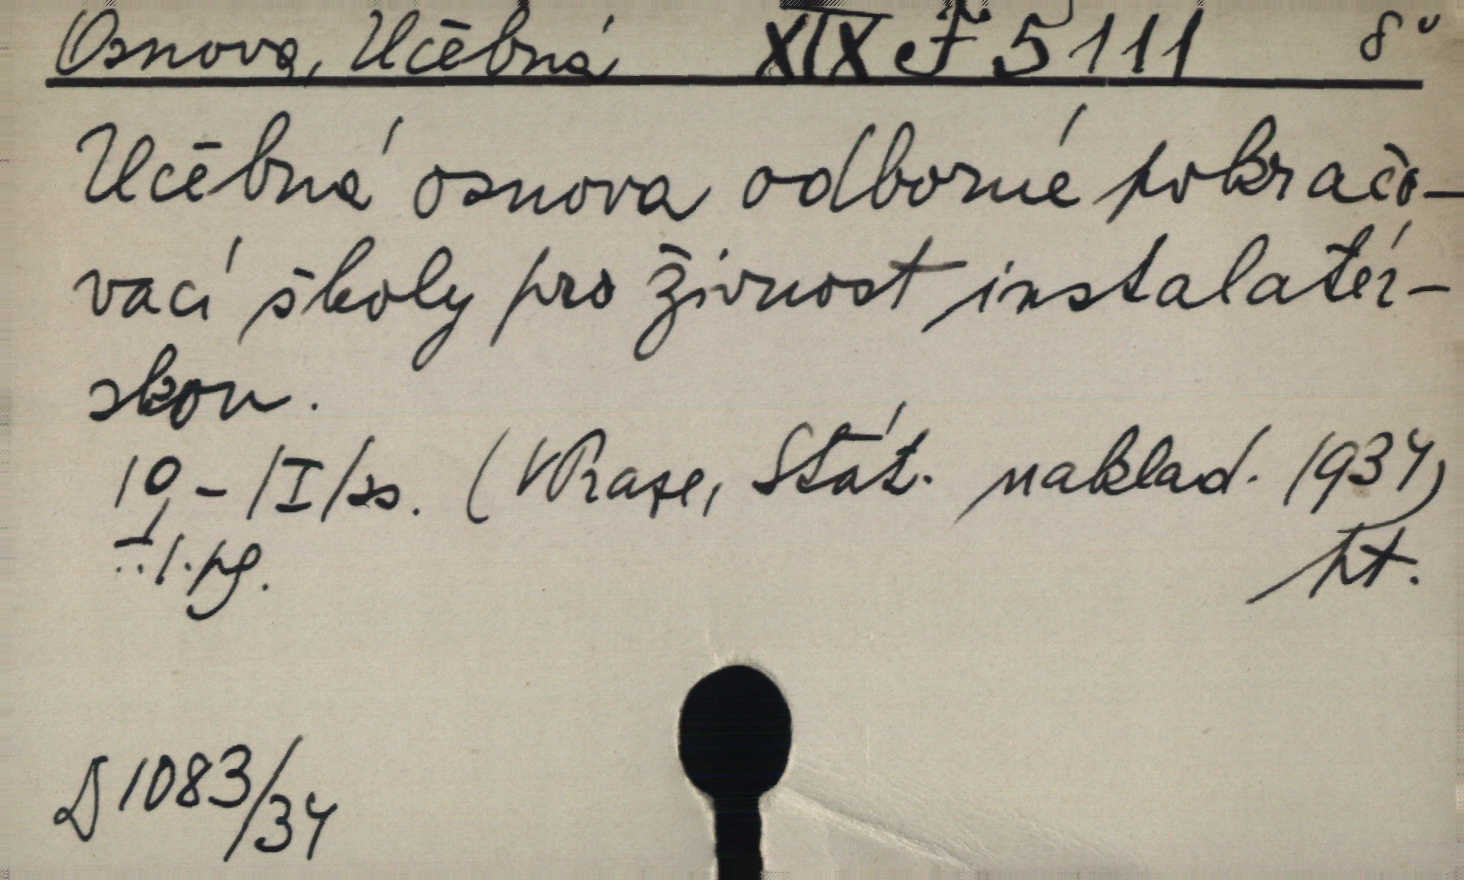 Osnova, Učebná XIX F 5111 8°
Učebná osnova odborné pokračo-
vací školy pro živnost instalatér-
skou.
10, - /I/ s. (V Praze, Stát. naklad. 1934)
1. pg. ht.
D 1083/34